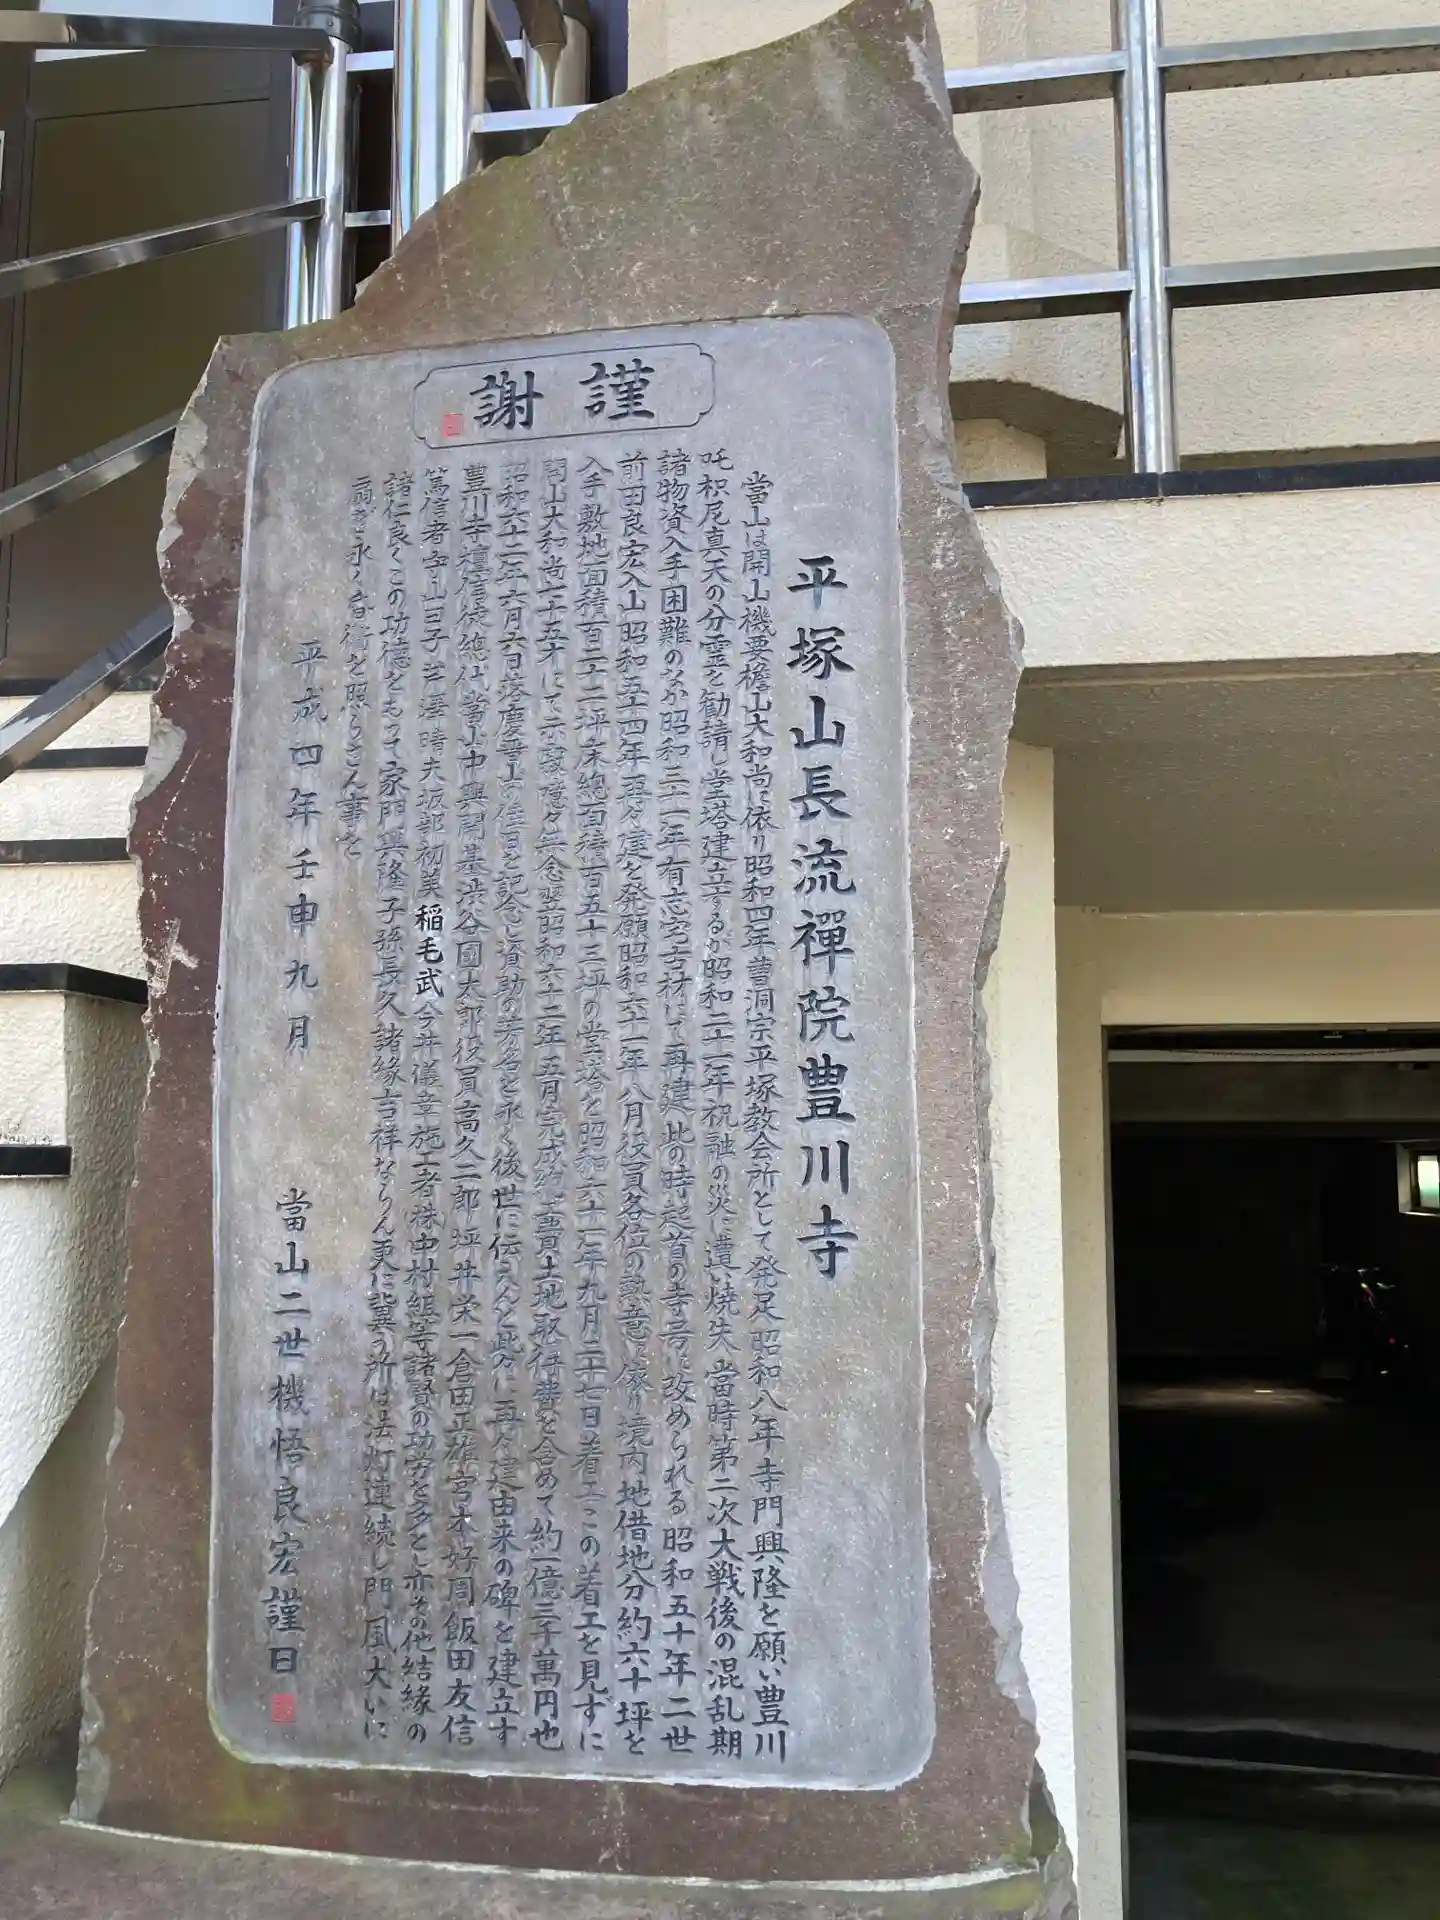 謹謝
平塚山長流禪院豊川寺
當山は開山機要檐山大和尚に依り昭和四年曹洞宗平塚教会所として発足昭和八年寺門興隆を願い豊川
吒枳尼真天の分霊を勧請し堂塔建立するが昭和二十年祝融の災に遭い焼失當時第二次大戦後の混乱期
諸物資入手困難のなか昭和三十一年有志宅古材にて再建此の時起首の寺号に改められる昭和五十年二世
前田良宏入山昭和五十四年再々建を発願昭和六十一年八月役員各位の熱意に依り境内地借地分約六十坪を
入手敷地面積百二十二坪床總面積百五十三坪の堂塔を昭和六十一年九月二十七日着工この着工を見ずに
開山大和尚七十五才にて示寂噫々無念翌昭和六十二年五月完成総工費土地取得費を含めて約一億三千萬円也
昭和六十二年六月六日落慶晋山の佳日を記念し資助の芳名を永く後世に伝えんと此処に再々建由来の碑を建立す
豊川寺檀信徒總代當山中興開基渋谷國太郎役員高久二郎坪井栄一倉田正雄宮本好周飯田友信
篤信者寺山曰子芹澤晴夫坂部初美稲毛武今井儀章施工者株中村組等諸賢の功労を多とし亦その他結縁の
諸仁良くこの功徳をもって家門興隆子孫長久諸縁吉祥ならん更に冀う所は法灯連続し門風大いに
扇ぎ永く昏衢を照らさん事を
平成四年壬申九月
當山二世機悟良宏謹曰